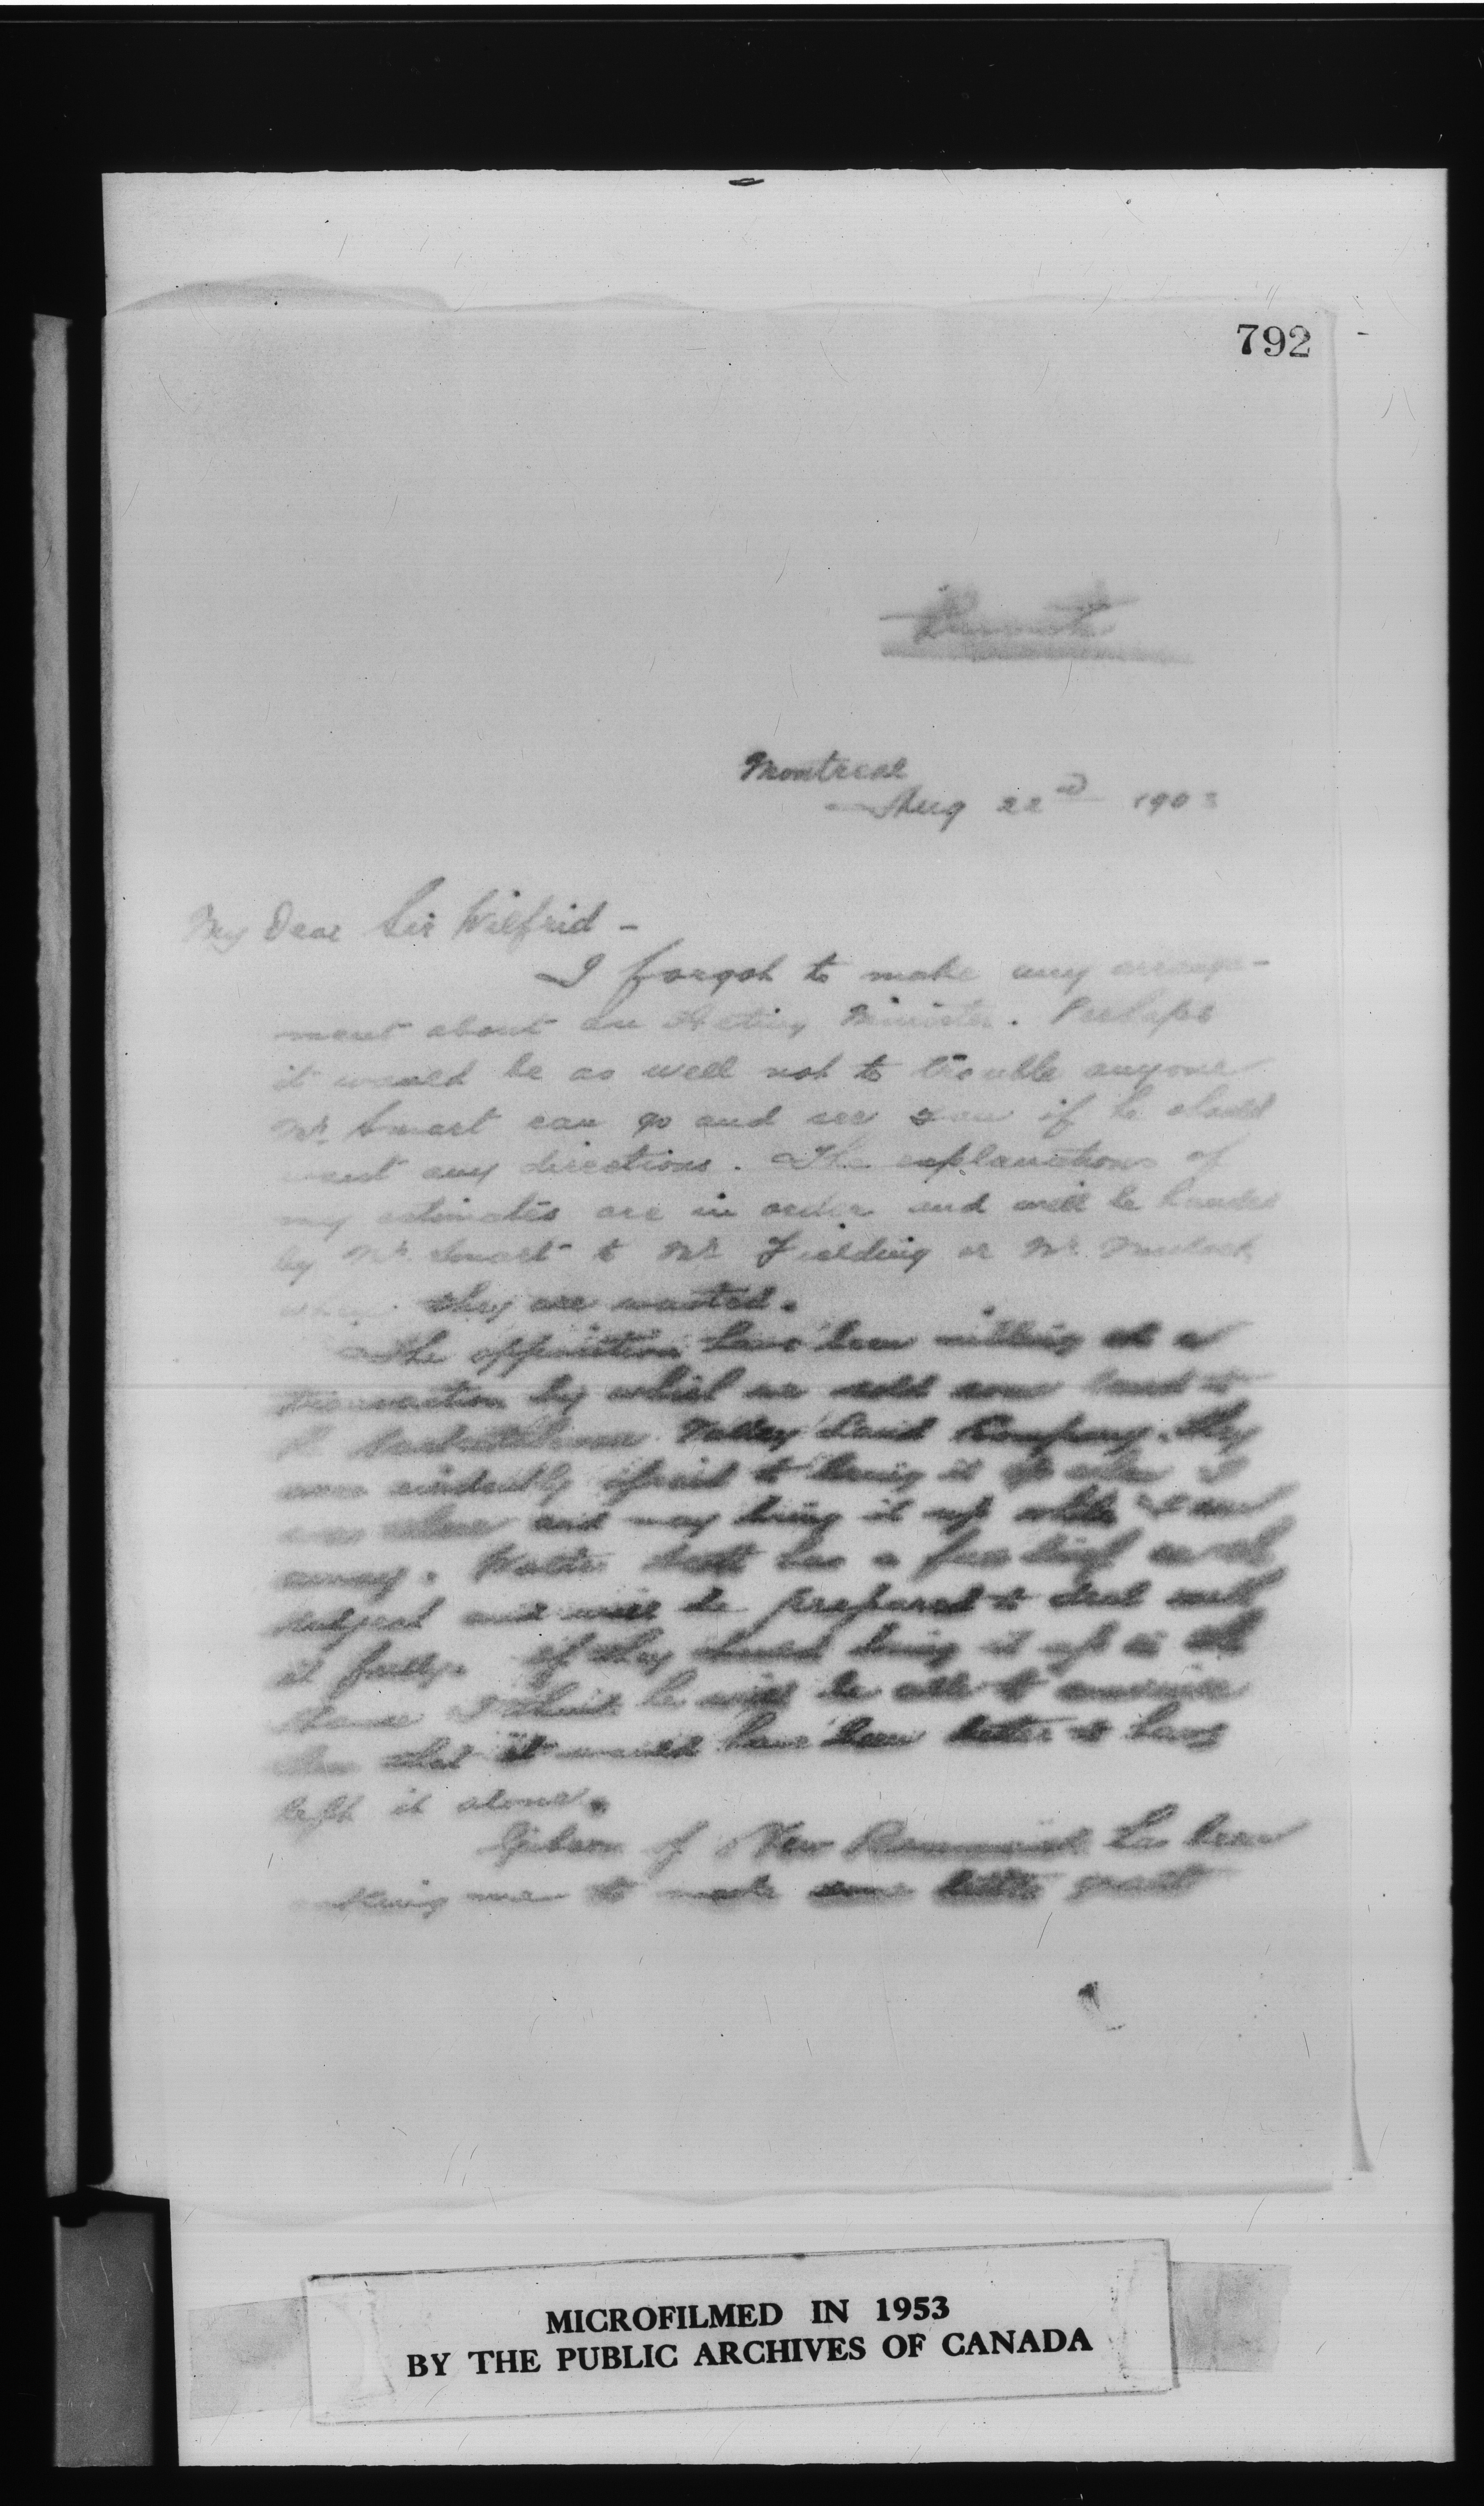 792
Private
Montreal
Aug 22nd 1903
My Dear Sir Wilfrid -
I forgot to make any arrange-
ment about an Acting Minister. Perhaps
it would be as well not to trouble anyone
Mr. Smart can go and see you if he should
want any directions. The explanations of
my estimates are in order and will be handed
by Mr. Smart to Mr. Fielding or Mr. Mulock
when they are wanted.
The opposition have been nibbling at a
transaction by which we sold some land to
Saskatchewan Valley Land Company. They
were evidently afraid to bring it up when I
was there and may bring it up while I am
away. Walter Scott has a full brief on the
subject and will be prepared to deal with
it fully. If they should bring it up in the
House I think he will be able to convince
them that it would have been better to have
left it alone.
Gibson of New Brunswick has been
asking me to make some little grant
MICROFILMED IN 1953
BY THE PUBLIC ARCHIVES OF CANADA